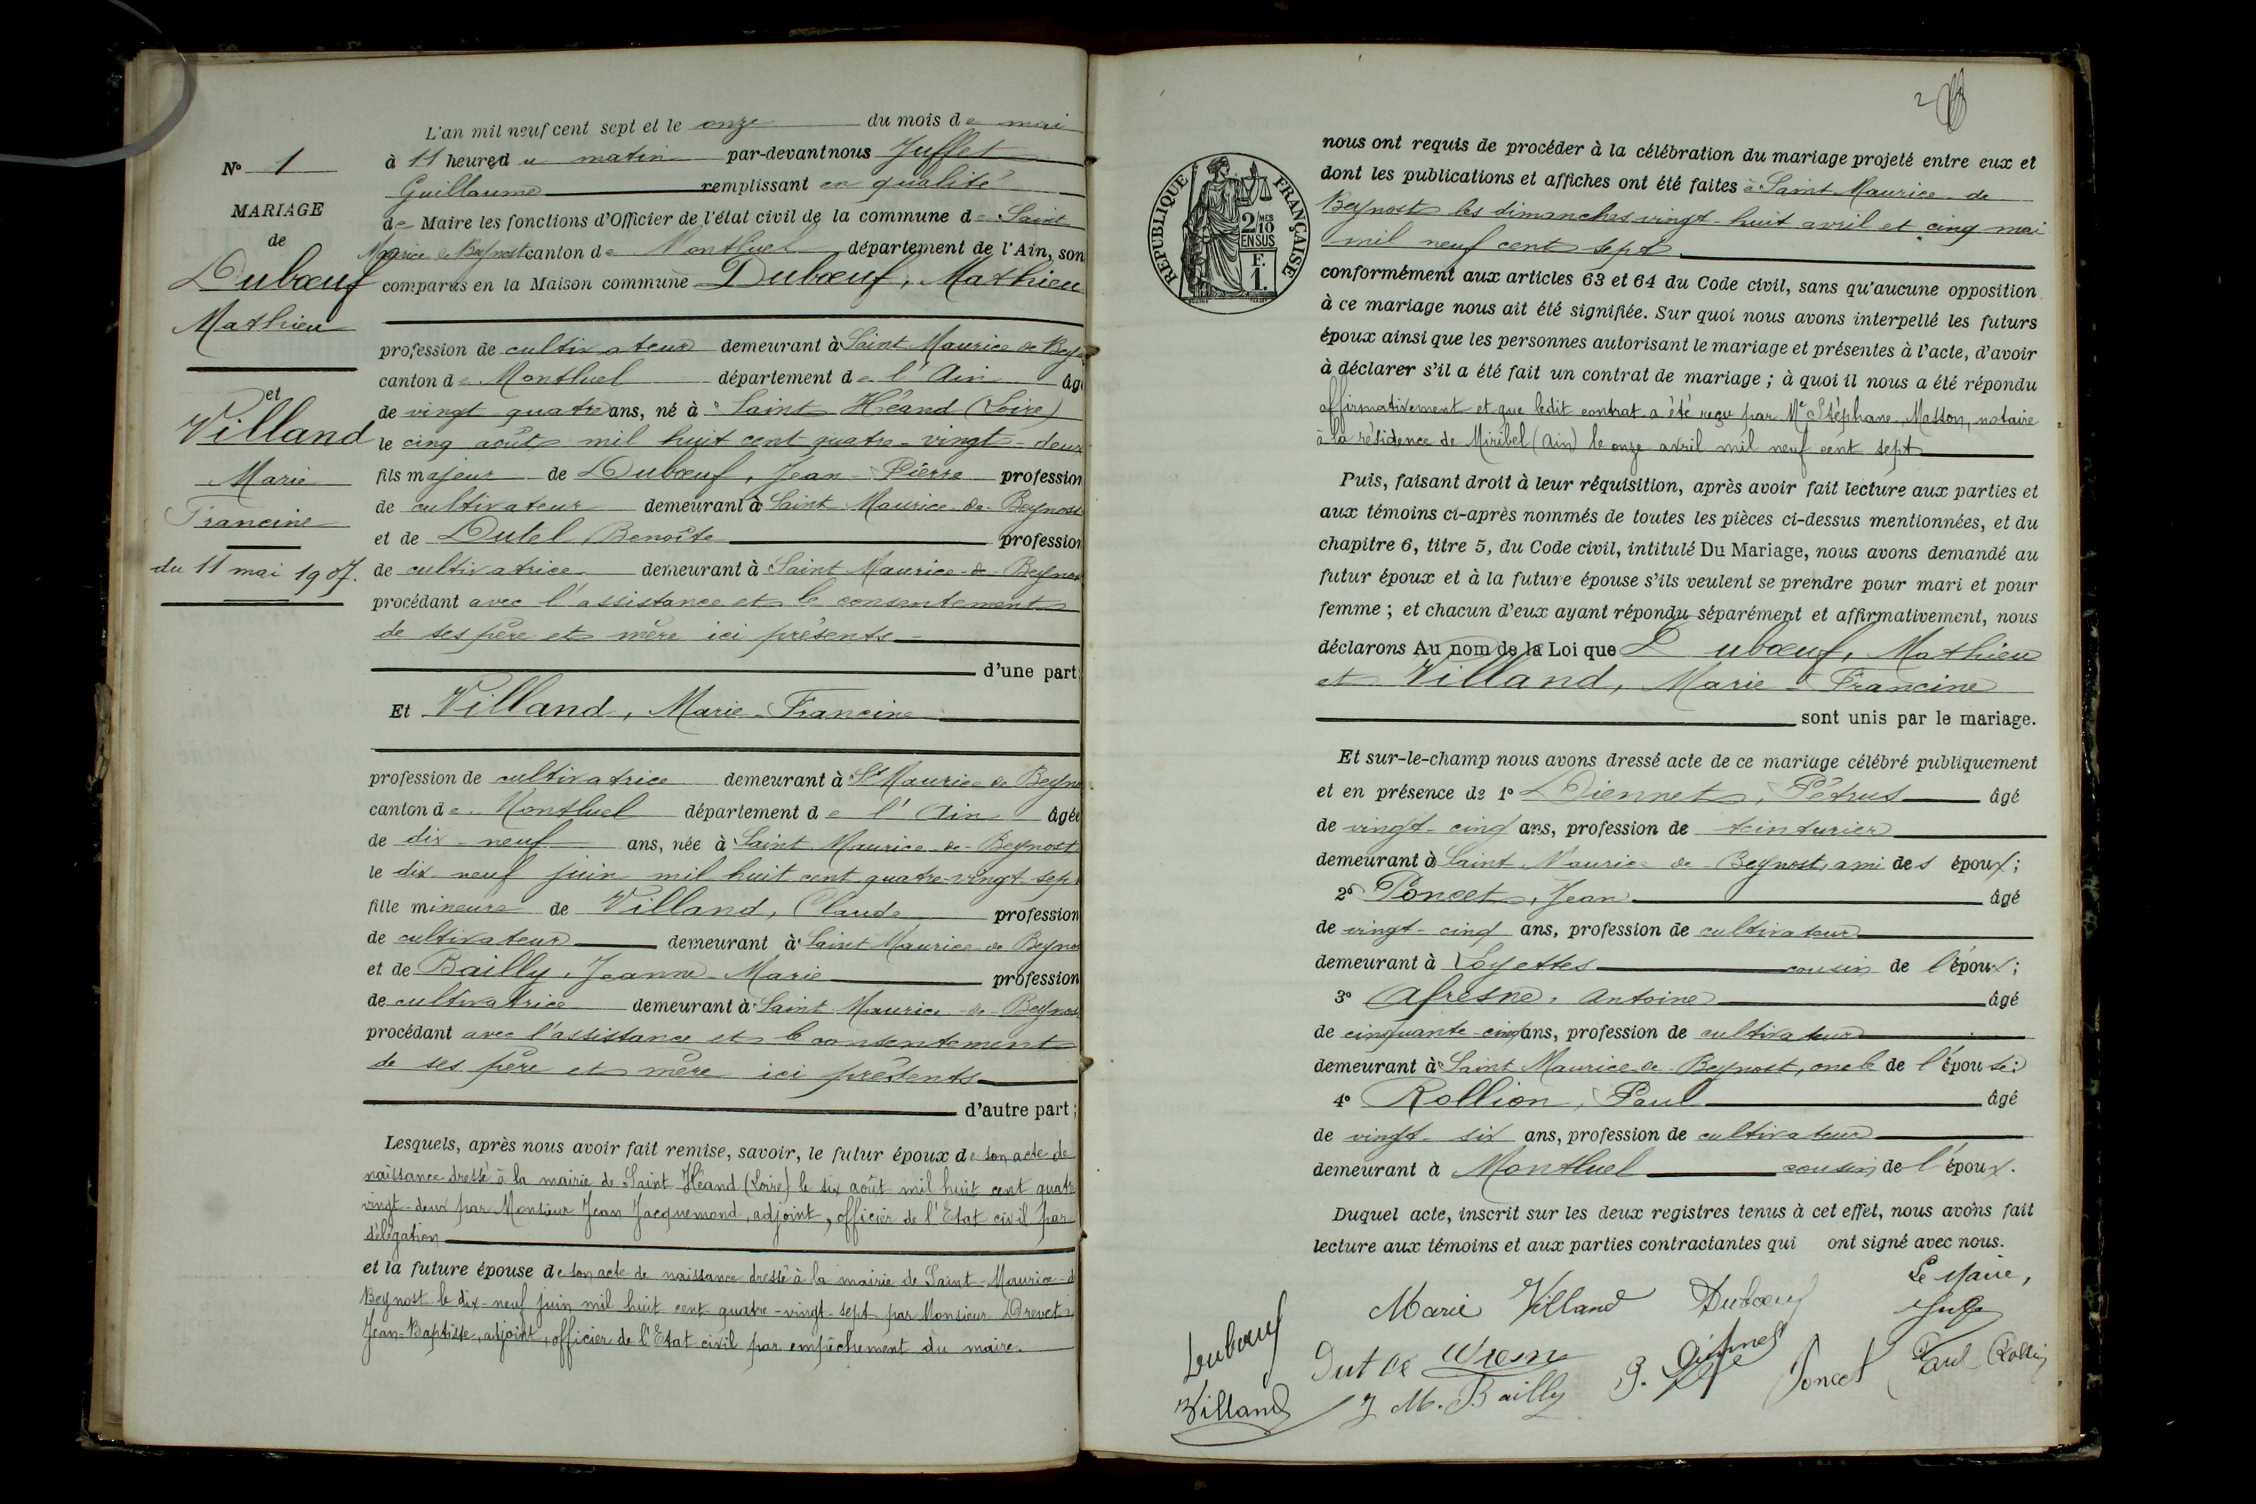 L'an mil neuf cent sept et le onze du mois de mai
à 11 heures du matin par-devant nous Juffet
Guillaume remplissant en qualité
de Maire les fonctions d'Officier de l'état civil de la commune de Saint
Maurice de Beynost canton de Montluel département de l'Ain, son
comparus en la Maison commune Dubœuf, Mathieu
profession de cultivateur demeurant à Saint Maurice de Bey
canton de Montluel département de l'Ain âg
de vingt quatre ans, né à Saint Héand (Loire)
le cinq août mil huit cent quatre-vingt-deux
fils majeur de Dubœuf, Jean-Pierre profession
de cultivateur demeurant à Saint Maurice de Beynost
et de Dutel Benoîte profession
de cultivatrice demeurant à Saint Maurice de Beynos
procédant avec l'assistance et le consentement
de ses père et mère ici présents
d'une part;
Et Villand, Marie-Francine
profession de cultivatrice demeurant à St Maurice de Beyno
canton de Montluel département de l'Ain âgée
de dix-neuf ans, née à Saint Maurice de Beynost
le dix-neuf juin mil huit cent quatre-vingt sept
fille mineure de Villand, Claude profession
de cultivateur demeurant à Saint Maurice de Beynos
et de Bailly, Jeanne Marie profession
de cultivatrice demeurant à Saint Maurice de Beynos
procédant avec l'assistance et le consentement
de ses père et mère ici présents
d'autre part;
Lesquels, après nous avoir fait remise, savoir, le futur époux de son acte de
naissance dressé à la mairie de Saint Héand (Loire) le six août mil huit cent quatre
vingt-deux par Monsieur Jean Jacquemond, adjoint, officier de l'Etat civil par
délégation
et la future épouse de son acte de naissance dressé à la mairie de Saint-Maurice-d
Beynost le dix-neuf juin mil huit cent quatre-vingt-sept par Monsieur Drevet
Jean-Baptiste, adjoint, officier de l'Etat civil par empêchement du maire.
N° 1
MARIAGE
de
Dubœuf
Mathieu
et
Villand
Marie
Francine
du 11 mai 1907.
2
RÉPUBLIQUE FRANÇAISE
2/10 MES
EN SUS
F.
1.
nous ont requis de procéder à la célébration du mariage projeté entre eux et
dont les publications et affiches ont été faites à Saint Maurice de
Beynost les dimanches vingt-huit avril et cinq mai
mil neuf cent sept
conformément aux articles 63 et 64 du Code civil, sans qu'aucune opposition
à ce mariage nous ait été signifiée. Sur quoi nous avons interpellé les futurs
époux ainsi que les personnes autorisant le mariage et présentes à l'acte, d'avoir
à déclarer s'il a été fait un contrat de mariage; à quoi il nous a été répondu
affirmativement et que ledit contrat a été reçu par Me Stéphane Masson, notaire
à la résidence de Miribel (Ain) le onze avril mil neuf cent sept
Puis, faisant droit à leur réquisition, après avoir fait lecture aux parties et
aux témoins ci-après nommés de toutes les pièces ci-dessus mentionnées, et du
chapitre 6, titre 5, du Code civil, intitulé Du Mariage, nous avons demandé au
futur époux et à la future épouse s'ils veulent se prendre pour mari et pour
femme; et chacun d'eux ayant répondu séparément et affirmativement, nous
déclarons Au nom de la Loi que Dubœuf, Mathieu
et Villand, Marie-Francine
sont unis par le mariage.
Et sur-le-champ nous avons dressé acte de ce mariage célébré publiquement
et en présence de 1° Diennet, Pétrus âgé
de vingt-cinq ans, profession de teinturier
demeurant à Saint Maurice de Beynost, ami des époux;
2° Poncet, Jean âgé
de vingt-cinq ans, profession de cultivateur
demeurant à Loyettes cousin de l'époux;
3° Afresne, Antoine âgé
de cinquante-cinq ans, profession de cultivateur
demeurant à Saint Maurice de Beynost, oncle de l'épouse;
4° Rollion, Paul âgé
de vingt-six ans, profession de cultivateur
demeurant à Montluel cousin de l'époux.
Duquel acte, inscrit sur les deux registres tenus à cet effet, nous avons fait
lecture aux témoins et aux parties contractantes qui ont signé avec nous.
Le Maire,
Marie Villand Dubœuf
Dubœuf
Poncet Paul Rollion
Villand J M. Bailly